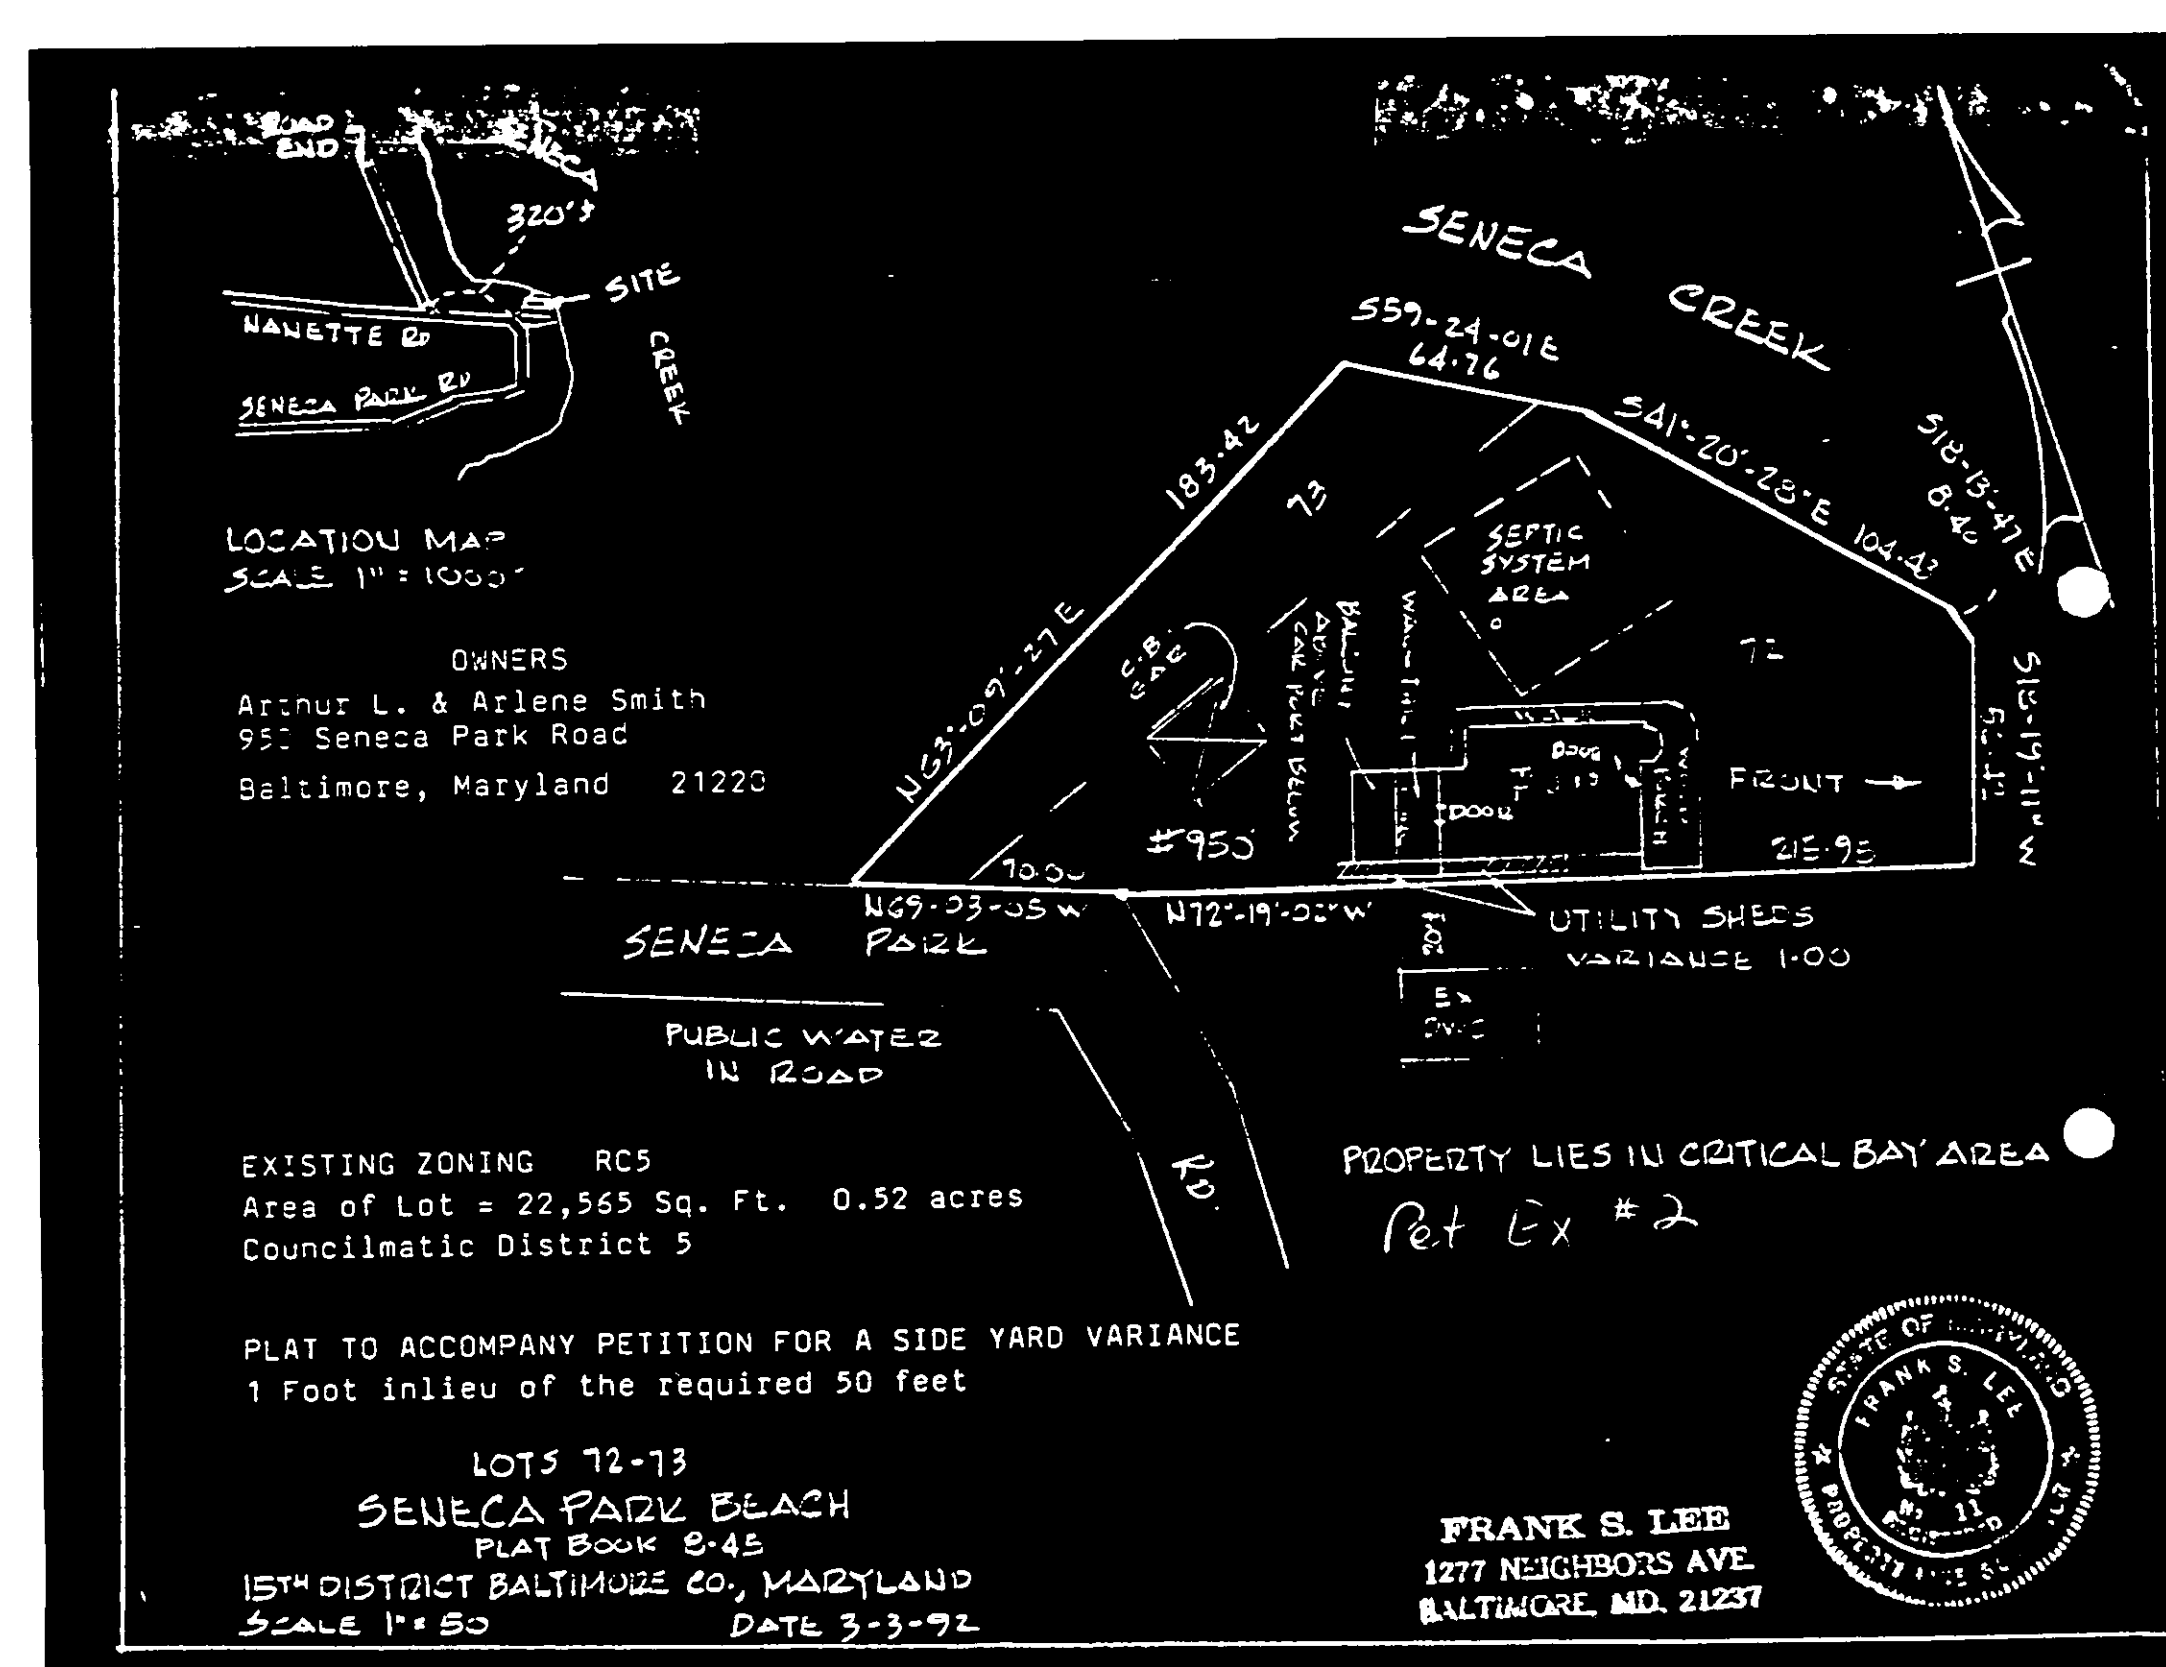 ROAD
END
SENECA
320'±
SITE
NANETTE RD
SENECA PARK RD
CREEK
LOCATION MAP
SCALE 1" = 1000'
OWNERS
Arthur L. & Arlene Smith
950 Seneca Park Road
Baltimore, Maryland 21220
SENECA CREEK
S59-24-01E
64.76
S41°-20'-28"E 104.43
S18-13'-47E
8.40
S18-19'-11" W
183.42
N63°-09'-27E
73
72
SEPTIC
SYSTEM
AREA
C.B.
BALCONY
ABOVE
CAR PORT BELOW
WALK
PORCH
DOOR
FRONT
#950
70.00
N69-03-05 W
N72°-19'-02" W
215.95
SENECA PARK
RD.
UTILITY SHEDS
VARIANCE 1.00
EX
DWG
PUBLIC WATER
IN ROAD
EXISTING ZONING RC5
Area of Lot = 22,565 Sq. Ft. 0.52 acres
Councilmatic District 5
PROPERTY LIES IN CRITICAL BAY AREA
Pet Ex #2
PLAT TO ACCOMPANY PETITION FOR A SIDE YARD VARIANCE
1 Foot inlieu of the required 50 feet
LOTS 72-73
SENECA PARK BEACH
PLAT BOOK 8-45
15TH DISTRICT BALTIMORE CO., MARYLAND
SCALE 1" = 50
DATE 3-3-92
FRANK S. LEE
1277 NEIGHBORS AVE.
BALTIMORE, MD. 21237
STATE OF MARYLAND
FRANK S. LEE
No 11
REGISTERED
PROPERTY LINE